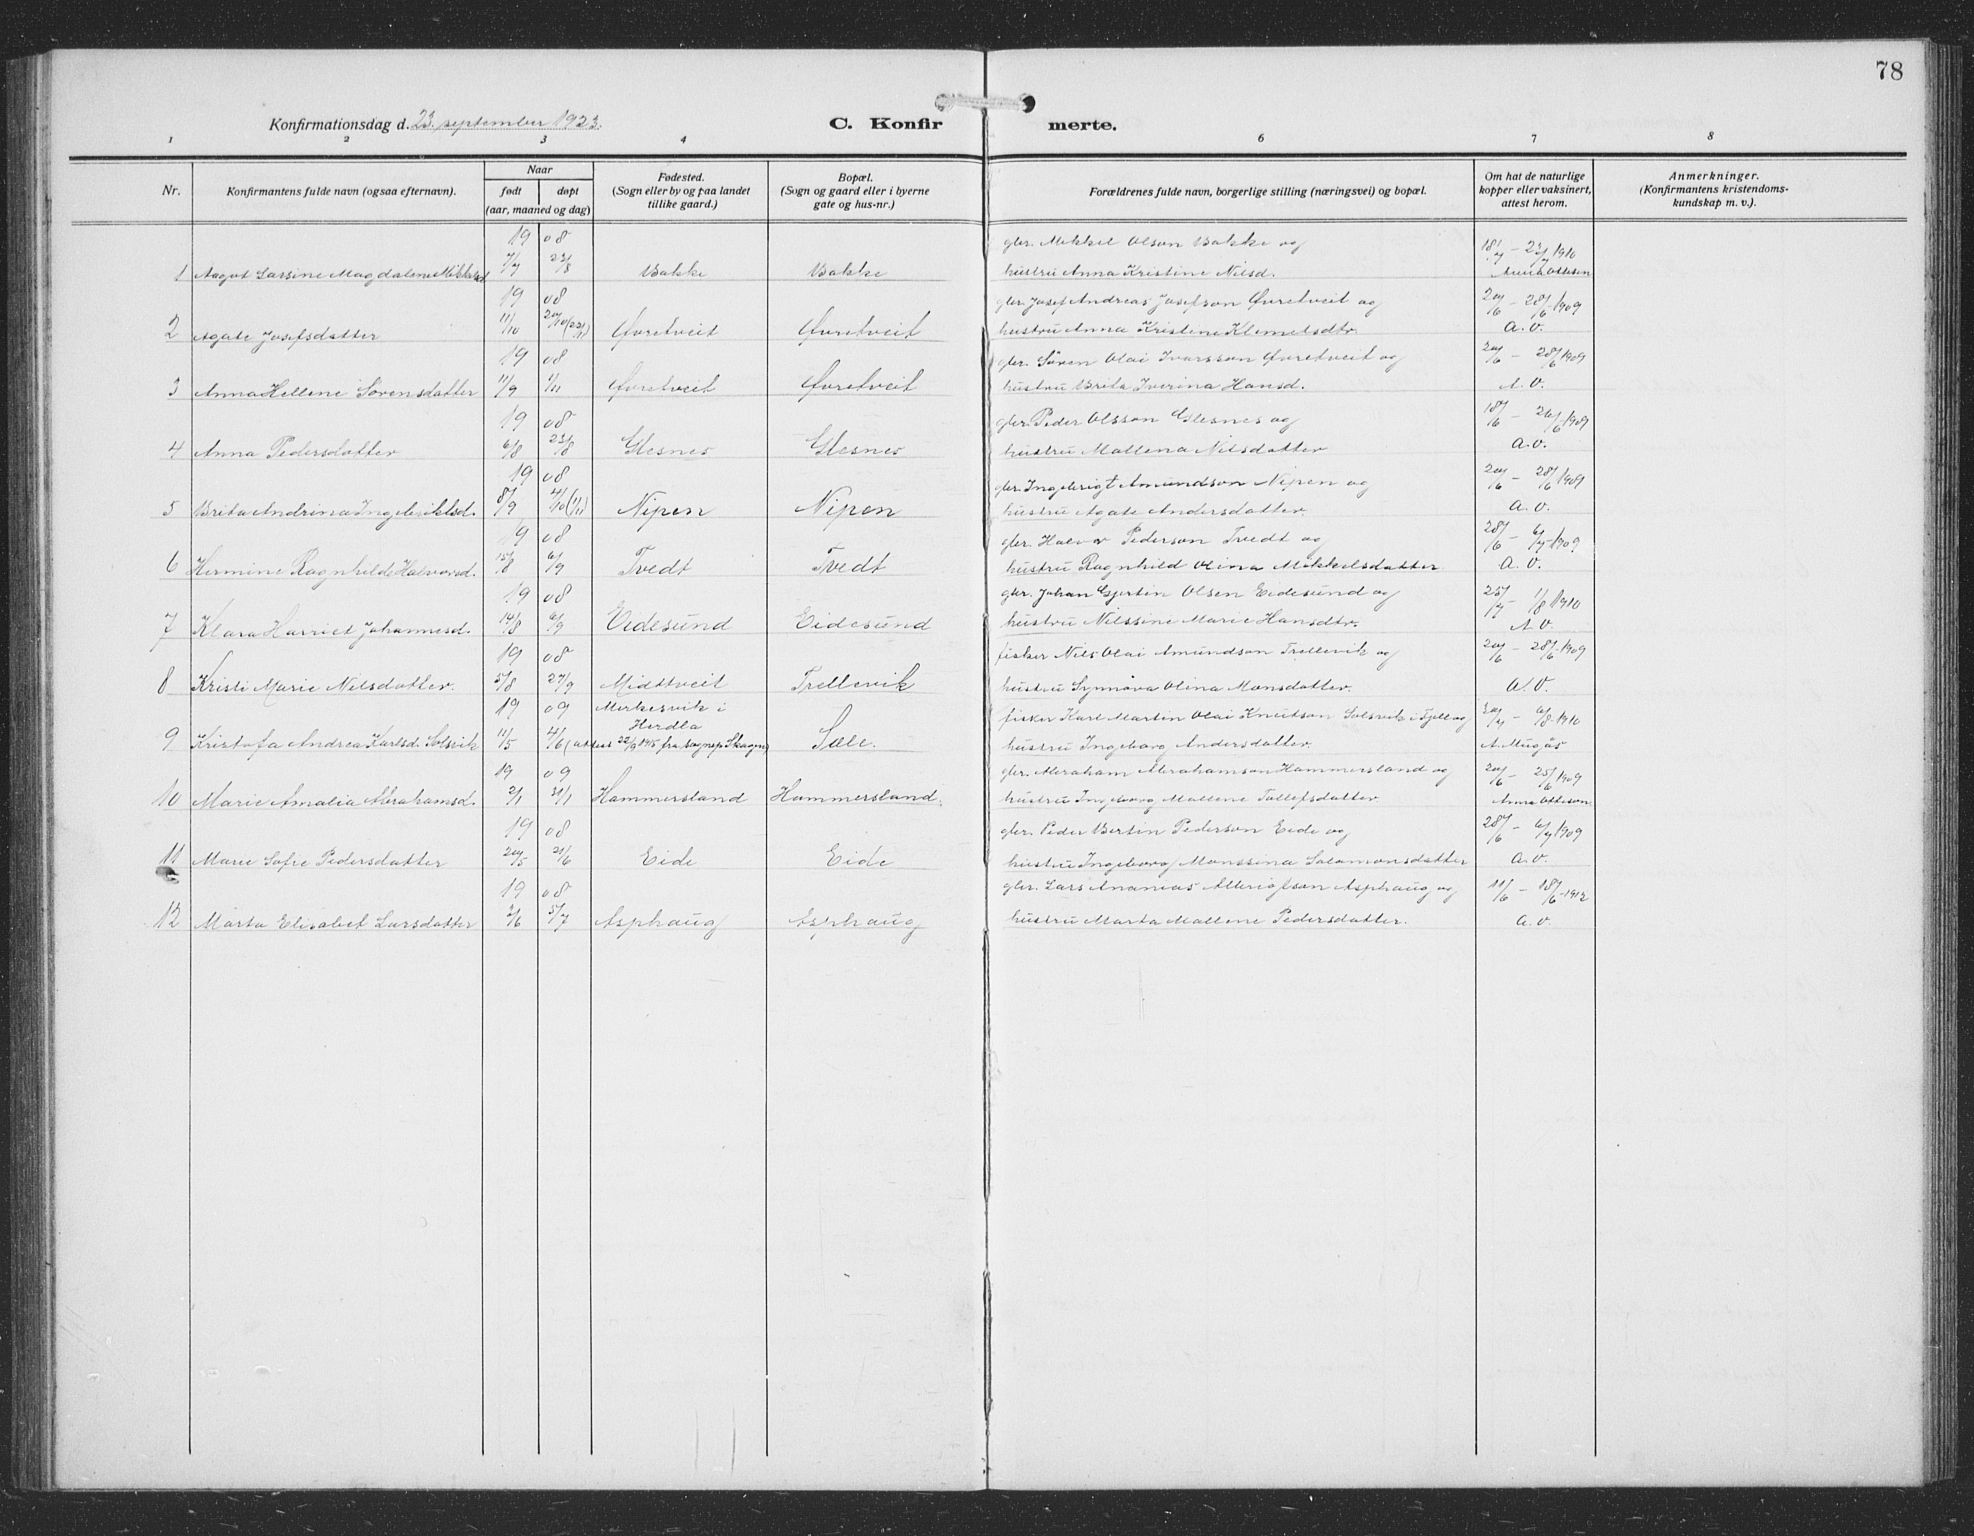 78
Konfirmationsdag d. 23. september 1923. C. Konfirmerte.
1 2 3 4 6 7 8
Nr. Konfirmantens fulde navn (ogsaa efternavn). Naar født døpt (aar, maaned og dag) Fødested. (Sogn eller by og paa landet tillike gaard.) Bopæl. (Sogn og gaard eller i byerne gate og hus-nr.) Forældrenes fulde navn, borgerlige stilling (næringsvei) og bopæl. Om hat de naturlige kopper eller vaksinert, attest herom. Anmerkninger. (Konfirmantens kristendoms-kundskap m. v.).
19 08 gbr. Mikkel Olson Bakke og
1 Aagot Larsine Magdalene Mikkelsd 7/7 23/8 Bakke Bakke hustru Anna Kristine Nilsd. Anna Otteson
19 08 gbr. Josef Andreas Josefson Øvretveit og 20/6 – 28/6 1909
2 Agate Josefsdatter 11/10 Øvretveit Øvretveit hustru Anna Kristene Klemetsdtr. A.O.
19 08 gbr. Søren Olai Ivarsson Øvretveit og 20/6 – 28/6 1909
3 Anna Hellene Sørensdatter 11/9 1/11 Øvretveit Øvretveit hustru Brita Iverina Hansd. A.O.
19 08 gbr. Peder Olsson Glesnes og 18/6 – 26/6 1909
4 Anna Pedersdatter 6/8 23/8 Glesnes Glesnes hustru Mallena Nilsdatter A.O.
19 08 gbr. Ingebrigt Amundson Nipen og 20/6 – 28/6 1909
5 Brita Andrina Ingebriktsd. 8/9 4/10 (1/11) Nipen Nipen hustru Agate Andersdatter. A.O.
19 08 gbr. Halvor Pederson Tvedt og 28/6 – 6/7 1909
6 Hermine Ragnhilde Halvorsd. 15/8 6/9 Tvedt Tvedt hustru Ragnhild Olina Mikkelsdatter A.O.
19 08 gbr. Johan Gjertin Olsen Eidesund og 25/7 – 1/8 1910
7 Klara Harriet Johannesd. 14/8 6/9 Eidesund Eidesund hustru Nilssine Marie Hansdtr. A.O.
19 08 fisker Nils Olai Amundson Trellevik og 20/6 – 28/6 1909
8 Kristi Marie Nilsdatter. 5/8 27/9 Midttveit Trellevik hustru Synnøva Olina Monsdatter. A.O.
19 09 Merkesvik i Herdla fisker Karl Martin Olai Knutson Solsvik i Fjell og 6/8 1910
9 Kristofa Andrea Karlsd. Solsvik 11/5 4/6 (attest 22/9 1915 fra sognep Skagen) Sæle. hustru Ingeborg Andersdatter. A. Mugås
19 09 gbr. Abraham Abrahamson Hammersland og 20/6 – 25/6 1909
10 Marie Amalia Abrahamsd. 2/1 31/1 Hammersland Hammersland. hustru Ingeborg Mallene Tollefsdatter Anna Otteson
19 08 gbr. Peder Bertin Pederson Eide og 28/6 – 6/7 1909
11 Marie Sofie Pedersdatter 20/5 21/6 Eide Eide hustru Ingeborg Monssina Salomonsdatter A.O.
19 08 gbr. Lars Ananias Allerigtson Asphaug og 11/6 – 18/6 1912
12 Marta Elisabet Larsdatter 2/6 5/7 Asphaug Asphaug hustru Marta Mallene Pedersdatter. A.O.